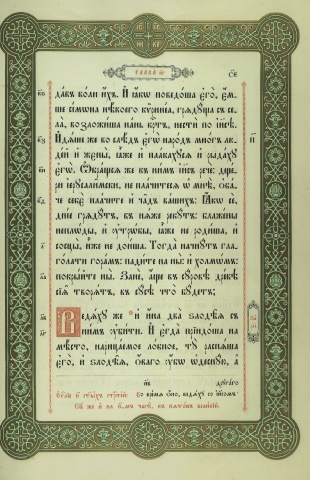 давъ воли ихъ. И ꙗкѡ поведоша его, ем-
ше симѡна нѣкоего кѵринеа, грядуща съ се-
ла, возложиша нань крⷭ҇тъ, нести по іи҃сѣ.
Идѧше же во слѣдъ егѡ народъ многъ лю-
дей и жены, ꙗже и плакахусѧ и рыдаху
егѡ. Ѡбращсѧ же къ нимъ іи҃съ рече: дще-
ри іерусалимски, не плачитесѧ ѡ мнѣ, ѻба-
че себе плачите и чадъ вашихъ: Ꙗкѡ се,
дніе грѧдутъ, въ нѧже рекутъ: блажены
неплѡды, и ѹтрѡбы, ꙗже не родиша, и
сосцы, иже не доиша. Тогда начнутъ гла-
голати горамъ: падите на ны: и холмѡмъ:
покрыйте ны. Зане, аще въ суровѣ древѣ
сїѧ творѧтъ, въ сусѣ что будетъ;
Ведѧху же и ина два злодѣѧ съ
нимъ ѹбити. И егда прїидоша на
мѣсто, нарицаемое лобное, ту распѧша
его, и злодѣѧ, ѻваго ѹбѡ ѡдесную, а
другаго